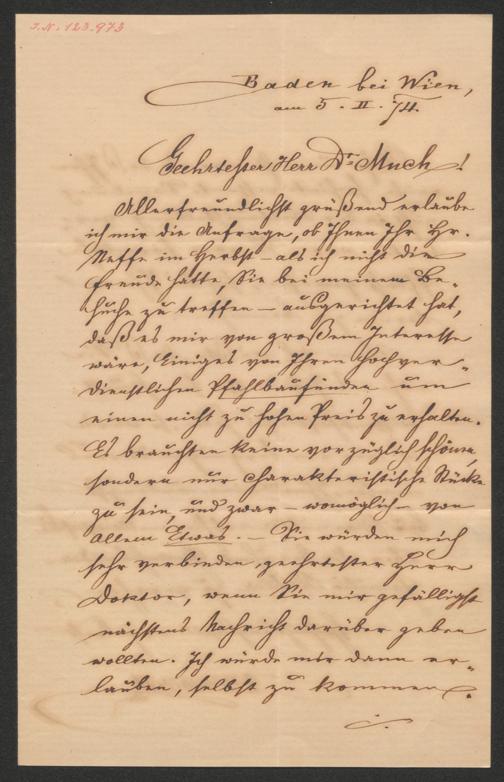 J.N. 123.973
Baden bei Wien,
am 5. II. 74.
Geehrtester Herr Dr. Much!
Allerfreundlichst grüßend erlaube
ich mir die Anfrage, ob Ihnen Ihr Hr.
Neffe im Herbst – als ich nicht die
Freude hatte, Sie bei meinem Be-
suche zu treffen – ausgerichtet hat,
daß es mir von großem Interesse
wäre, Einiges von Ihren hochver-
dienstlichen Pfahlbaufunden um
einen nicht zu hohen Preis zu erhalten.
Es brauchten keine vorzüglich schönen,
sondern nur charakteristische Stücke
zu sein, und zwar – womöglich – von
allem Etwas. – Sie würden mich
sehr verbinden, geehrtester Herr
Doktor, wenn Sie mir gefälligst
nächstens Nachricht darüber geben
wollten. Ich würde mir dann er-
lauben, selbst zu kommen.